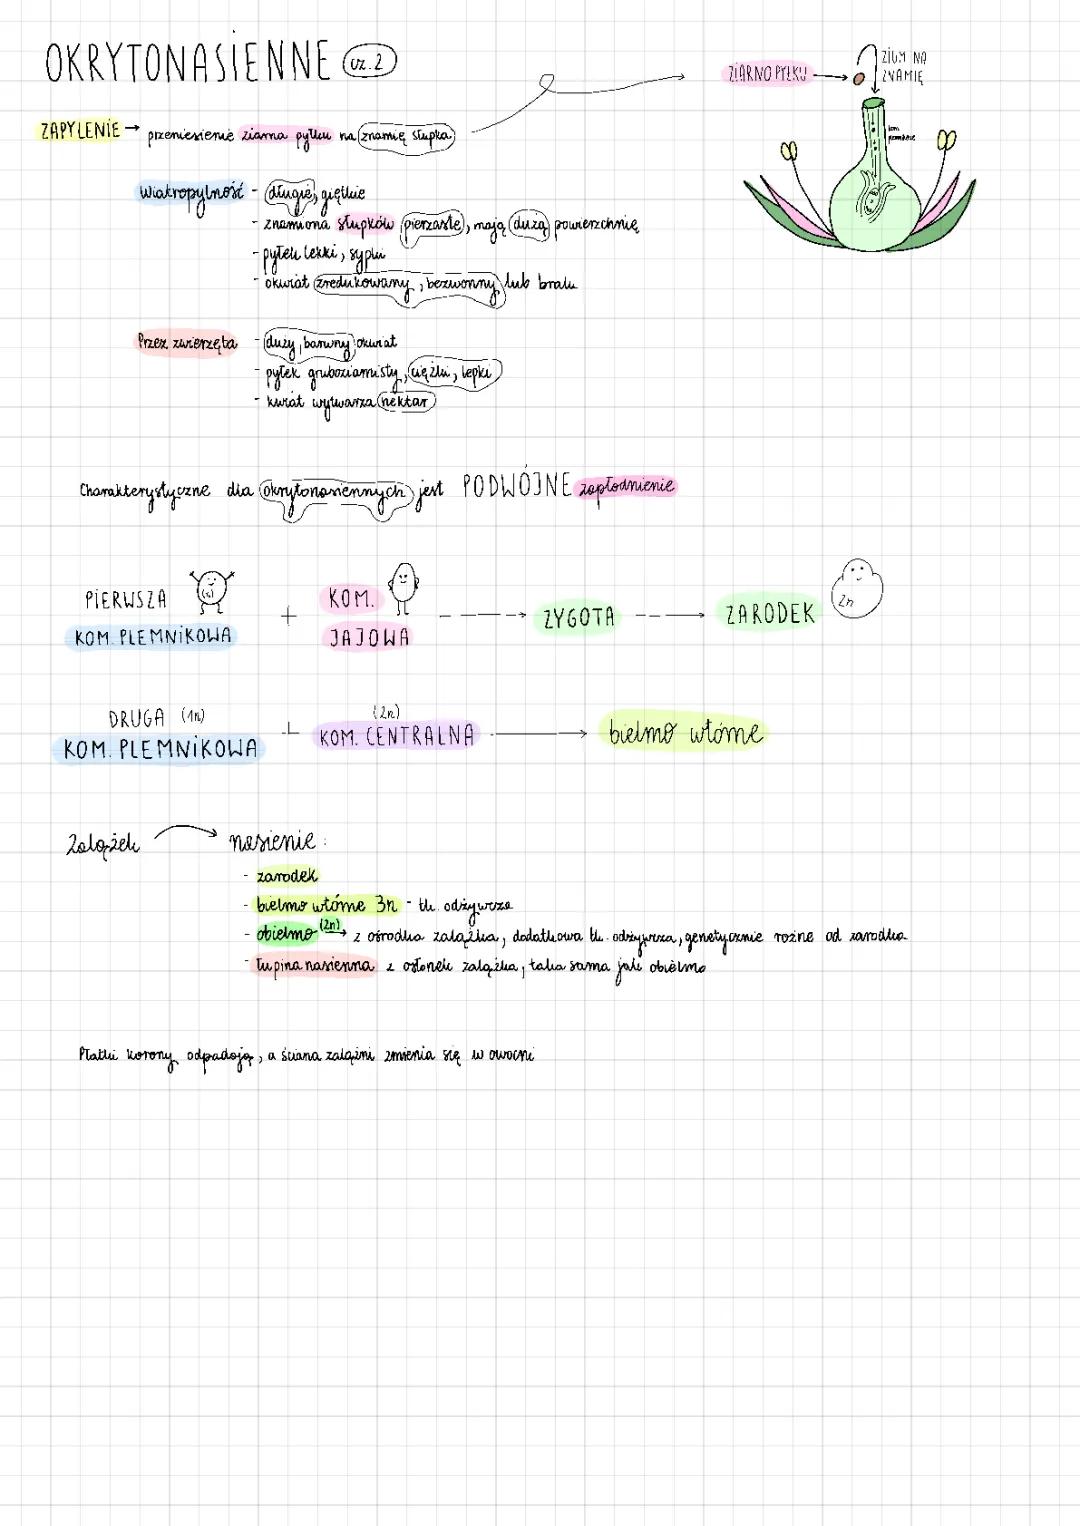 OKRYTONASIENNE cz. 2
ZIARNO PYŁKU
ZIUM NA
ZNAMIĘ
ZAPYLENIE → przeniesienie ziarna pyłku na znamię słupka
kom
Wiatropylność - długie, giętkie
- znamiona słupków pierzaste, mają dużą powierzchnię
- pyłek lekki, sypki
- okwiat zredukowany, bezwonny lub brak
Przez zwierzęta - duży, barwny okwiat
- pyłek gruboziarnisty, ciężki, lepki
- kwiat wytwarza nektar
Charakterystyczne dla okrytonasiennych jest PODWÓJNE zapłodnienie
PIERWSZA (n) + KOM. → ZYGOTA → ZARODEK 2n
KOM. PLEMNIKOWA JAJOWA
DRUGA (1n) + (2n)
KOM. PLEMNIKOWA KOM. CENTRALNA → bielmo wtórne
Zalążek → nasienie:
- zarodek
- bielmo wtórne 3n - tk. odżywcza
- obielmo (2n) → z ośrodka zalążka, dodatkowa tk. odżywcza, genetycznie rożne od zarodka
- łupina nasienna z osłonek zalążka, taka sama jak obielmo
Płatki korony odpadają, a ściana zalążni zmienia się w owocni